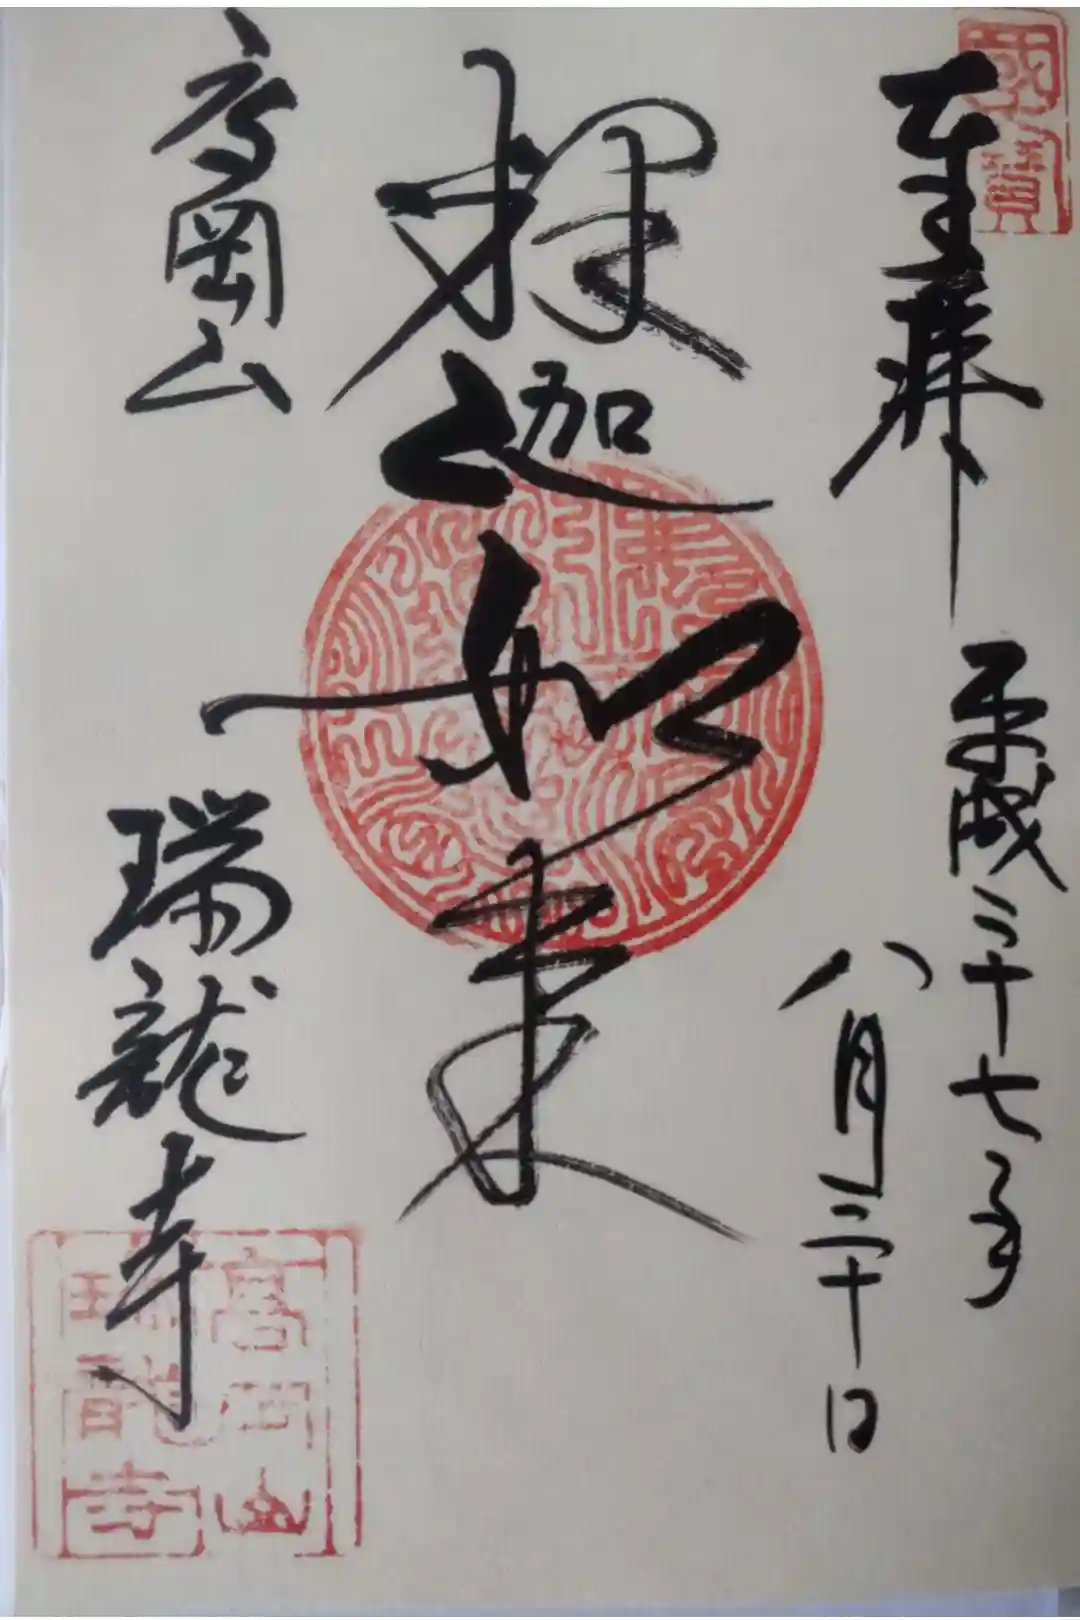 國寳
奉拝
平成二十七年
八月二十日
釈迦如来
高岡山
瑞龍寺
高岡山
瑞龍寺